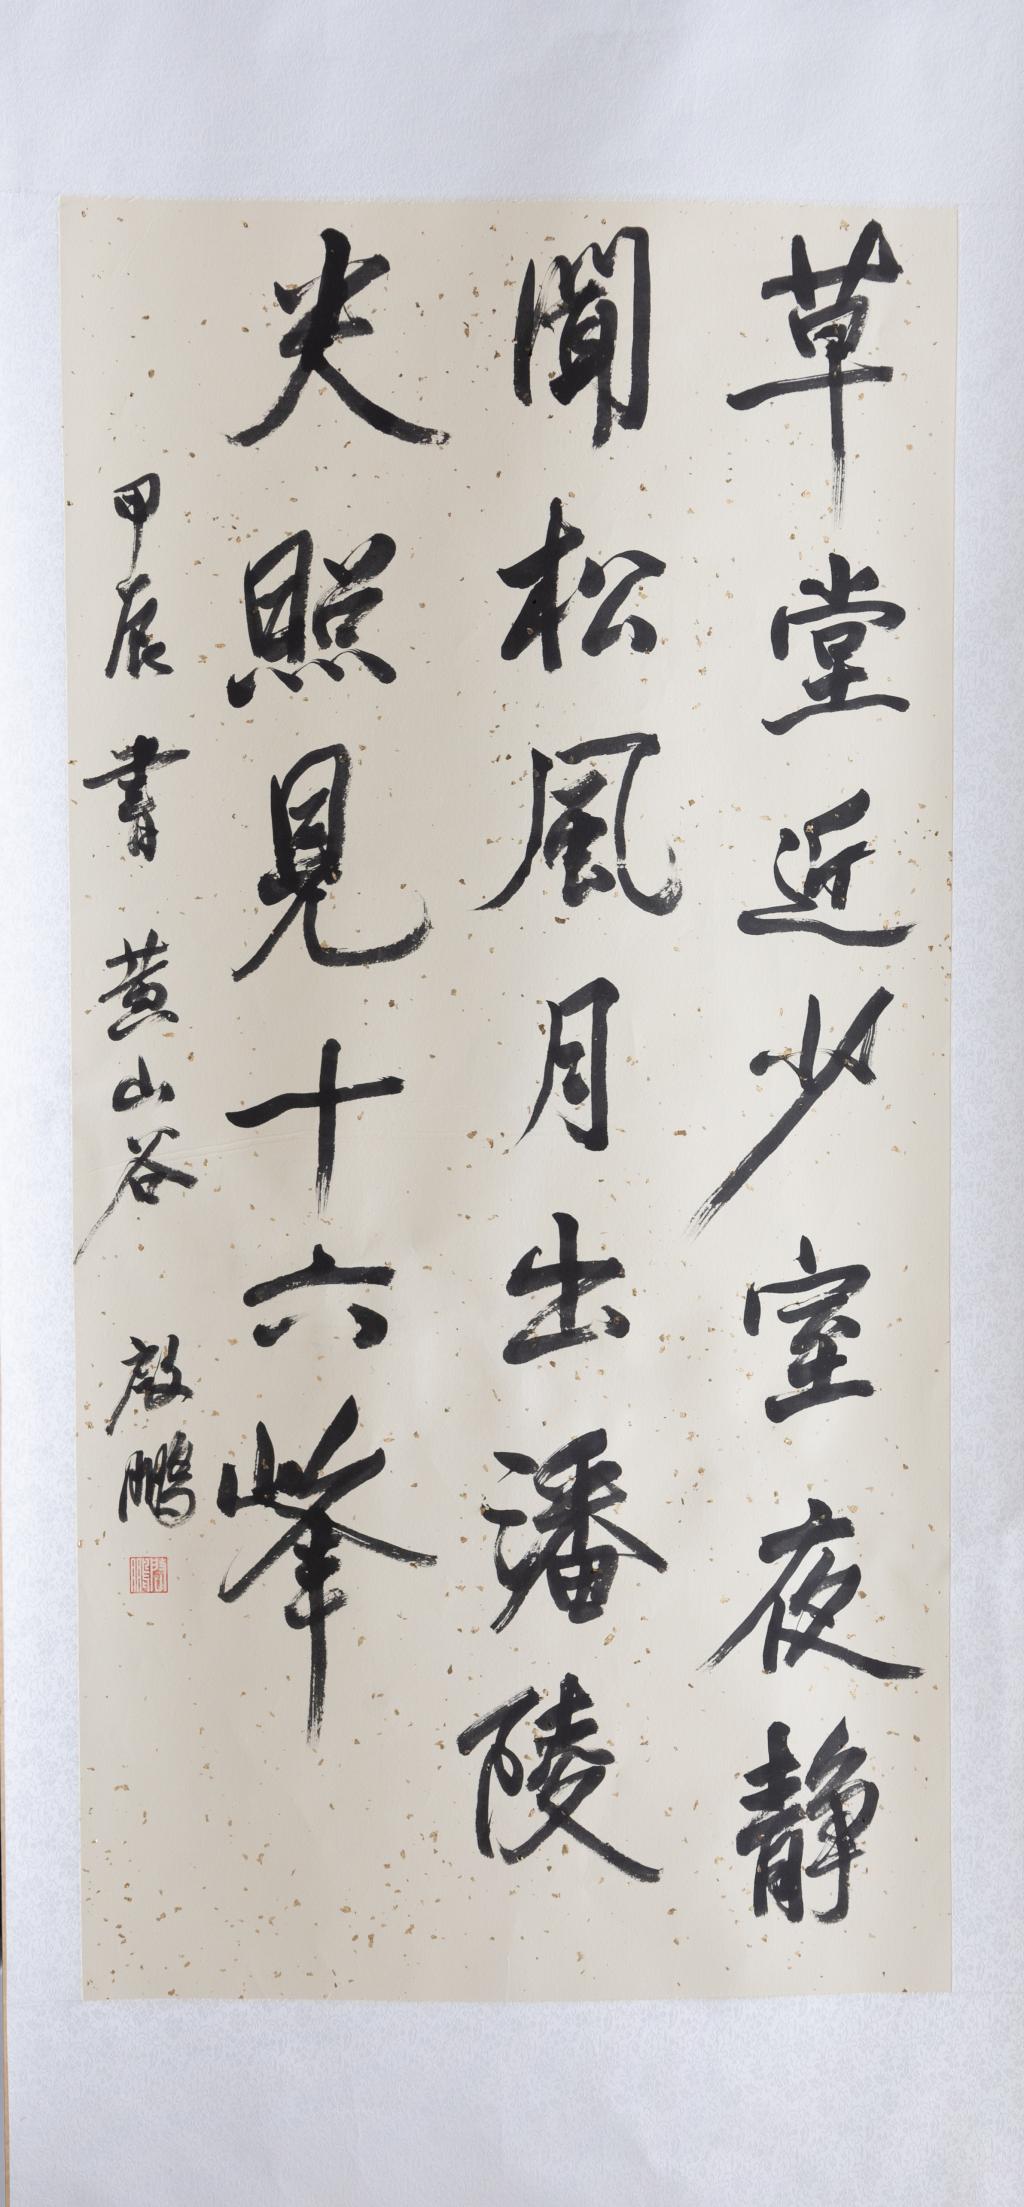 草堂近少室夜静
聞松風月出潘陵
尖照見十六峰
甲辰書黄山谷啟鵬